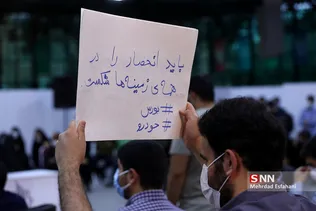 باید انحصار را در
همه‌ی زمینه‌ها شکست
#بورس
#خودرو
SNN
Mehrdad Esfahani